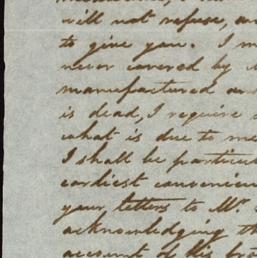 will not refuse, an
to give you. I m
never covered by
manufactured an
is dead, I require
what is due to me
I shall be particul
earliest convenien
your letters to Mr.
acknowledging th
account of his bro